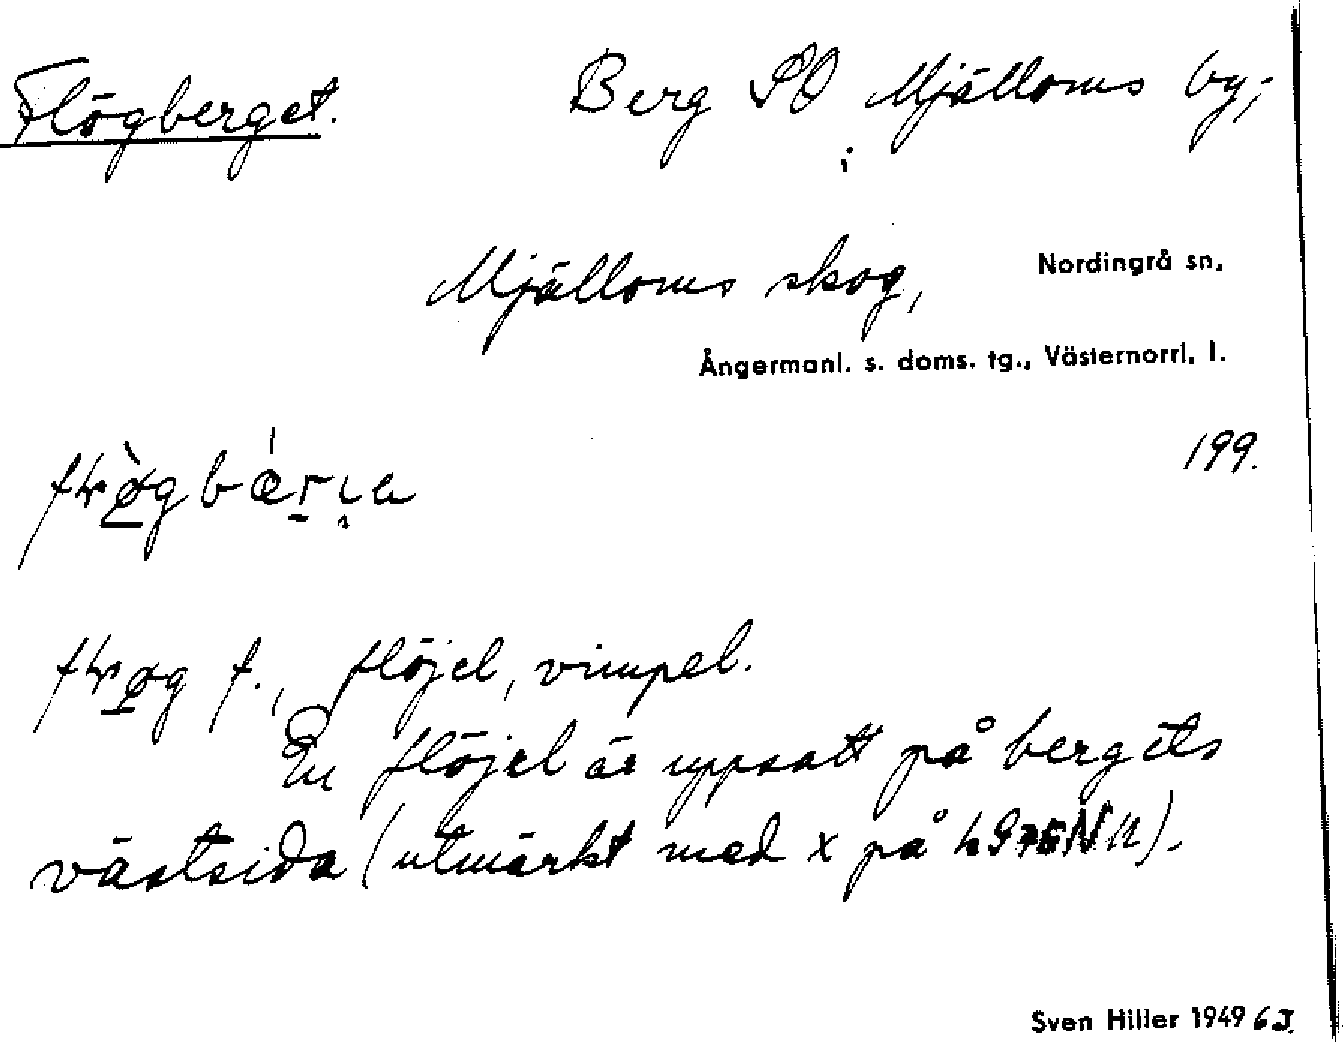 Flögberget. Berg SO Mjälloms by,
i
Mjälloms skog, Nordingrå sn,
Ångermanl. s. doms. tg., Västernorrl. l.
199.
f., flöjel, vimpel.
En flöjel är uppsatt på bergets
västsida (utmärkt med x på
Sven Hiller 1949 6J